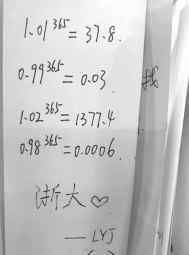 1.01^365 = 37.8.
0.99^365 = 0.03
1.02^365 = 1377.4
0.98^365 = 0.0006.
浙大♡
—— LYJ